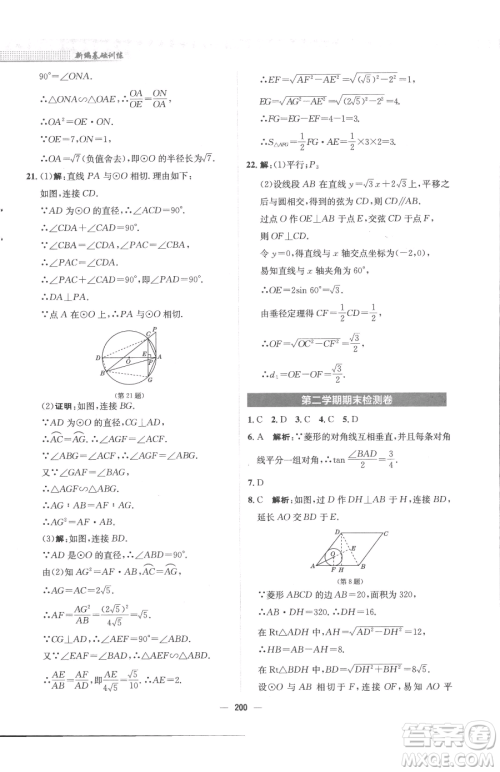 新编基础训练
90°=∠ONA.
∴△ONA∽△OAE, ∴OA/OE=ON/OA.
∴OA²=OE·ON.
∵OE=7, ON=1,
∴OA=√7(负值舍去), 即⊙O的半径长为√7.
21. (1)解:直线PA与⊙O相切. 理由如下:
如图, 连接CD.
∵AD为⊙O的直径, ∴∠ACD=90°.
∴∠CDA+∠CAD=90°.
∵∠CBA=∠CDA, ∠PAC=∠CBA,
∴∠PAC+∠CAD=90°, 即∠PAD=90°.
∴DA⊥PA.
∵点A在⊙O上, ∴直线PA与⊙O相切.
P
C
B
E
D
O
F
A
G
(第21题)
(2)证明:如图, 连接BG.
∵AD为⊙O的直径, CG⊥AD,
∴AC=AG. ∴∠AGF=∠ACF=∠ABG.
∵∠GAF=∠BAG,
∴△AGF∽△ABG.
∴AG∶AB=AF∶AG.
∴AG²=AF·AB.
(3)解:如图, 连接BD.
∵AD是⊙O的直径, ∴∠ABD=90°.
由(2)知AG²=AF·AB, AC=AG,
∴AG=AC=2√5, AB=4√5.
∴AF=AG²/AB=(2√5)²/4√5=√5.
∵CG⊥AD, ∴∠AEF=∠ABD=90°.
∵∠EAF=∠BAD, ∴△AEF∽△ABD.
∴AE/AB=AF/AD, 即AE/4√5=√5/10, 解得AE=2.
∴EF=√(AF²−AE²)=√((√5)²−2²)=1.
∵EG=√(AG²−AE²)=√((2√5)²−2²)=4,
∴FG=EG−EF=4−1=3.
∴S△AFG=1/2FG·AE=1/2×3×2=3.
22. 解:(1)平行; P₃
(2)设线段AB在直线y=√3x+2√3上, 平移之
后与圆相交, 得到的弦为CD, CD∥AB,
过点O作OE⊥AB于点E, 交弦CD于点F,
则OF⊥CD.
令y=0, 易知直线与x轴交点为(−2,0),
易知直线与x轴夹角为60°,
∴OE=2sin 60°=√3.
由垂径定理得CF=1/2CD=1/2,
∴OF=√(OC²−CF²)=√3/2.
∴d₁=OE−OF=√3/2.
第二学期期末检测卷
1. C 2. D 3. C 4. C 5. D
6. A 解析:∵菱形的对角线互相垂直, 每条对角
线平分一组对角, ∴tan∠BAD/2=3/4.
7. D
8. C 解析:如图, 设BD, AC交于点E, 连接BD,
过点D作DH⊥AB于点H.
D
C
E
O
A
F
H
B
(第8题)
∵菱形ABCD的边长为AB=20, 面积为320,
∴AB·DH=320, ∴DH=16.
在Rt△ADH中, AH=√(AD²−DH²)=12.
∴HB=AB−AH=8.
在Rt△BDH中, BD=√(DH²+BH²)=8√5.
设⊙O与AB相切于点F, 连接OF.
200
答案圈
MXQE.COM